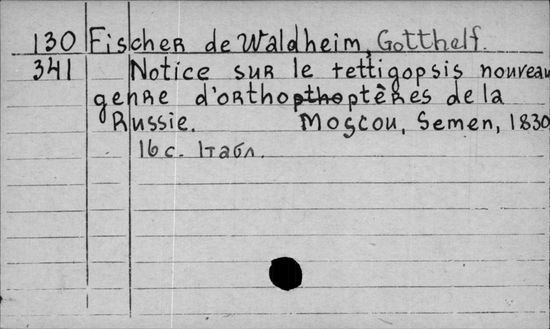 130 Fischer de Waldheim, Gotthelf.
341 Notice sur le tettigopsis nouveau
genre d'orthoptères de la
Russie. Moscou, Semen, 1830
16 с. 1табл.